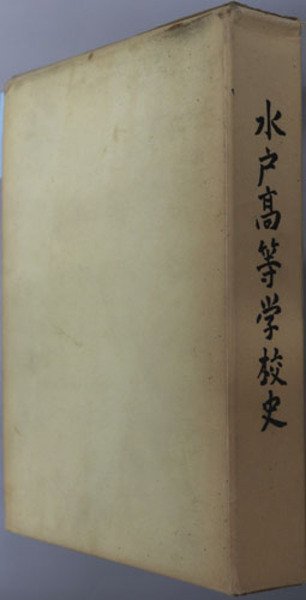 水戸高等学校史